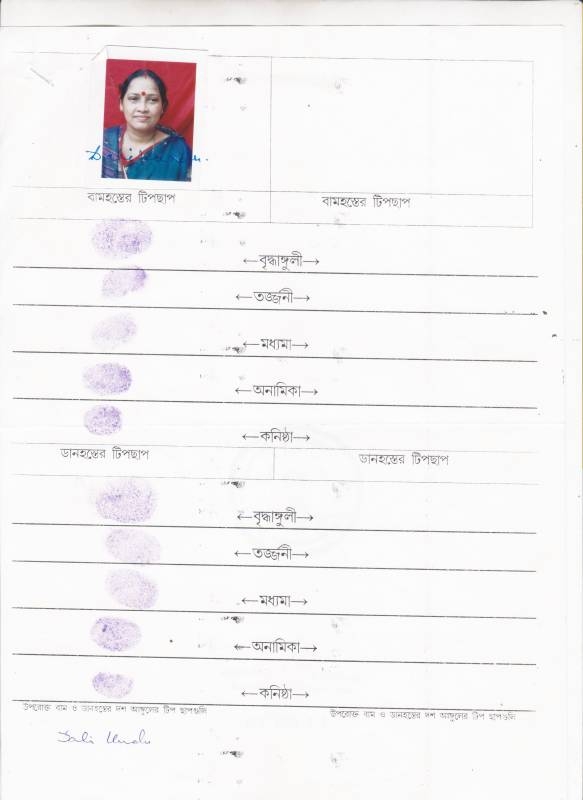 বামহস্তের টিপছাপ বামহস্তের টিপছাপ
←বৃদ্ধাঙ্গুলী→
←তর্জ্জনী→
←মধ্যমা→
←অনামিকা→
←কনিষ্ঠা→
ডানহস্তের টিপছাপ ডানহস্তের টিপছাপ
←বৃদ্ধাঙ্গুলী→
←তর্জ্জনী→
←মধ্যমা→
←অনামিকা→
←কনিষ্ঠা→
উপরোক্ত বাম ও ডানহস্তের দশ আঙ্গুলের টিপ ছাপগুলি উপরোক্ত বাম ও ডানহস্তের দশ আঙ্গুলের টিপ ছাপগুলি